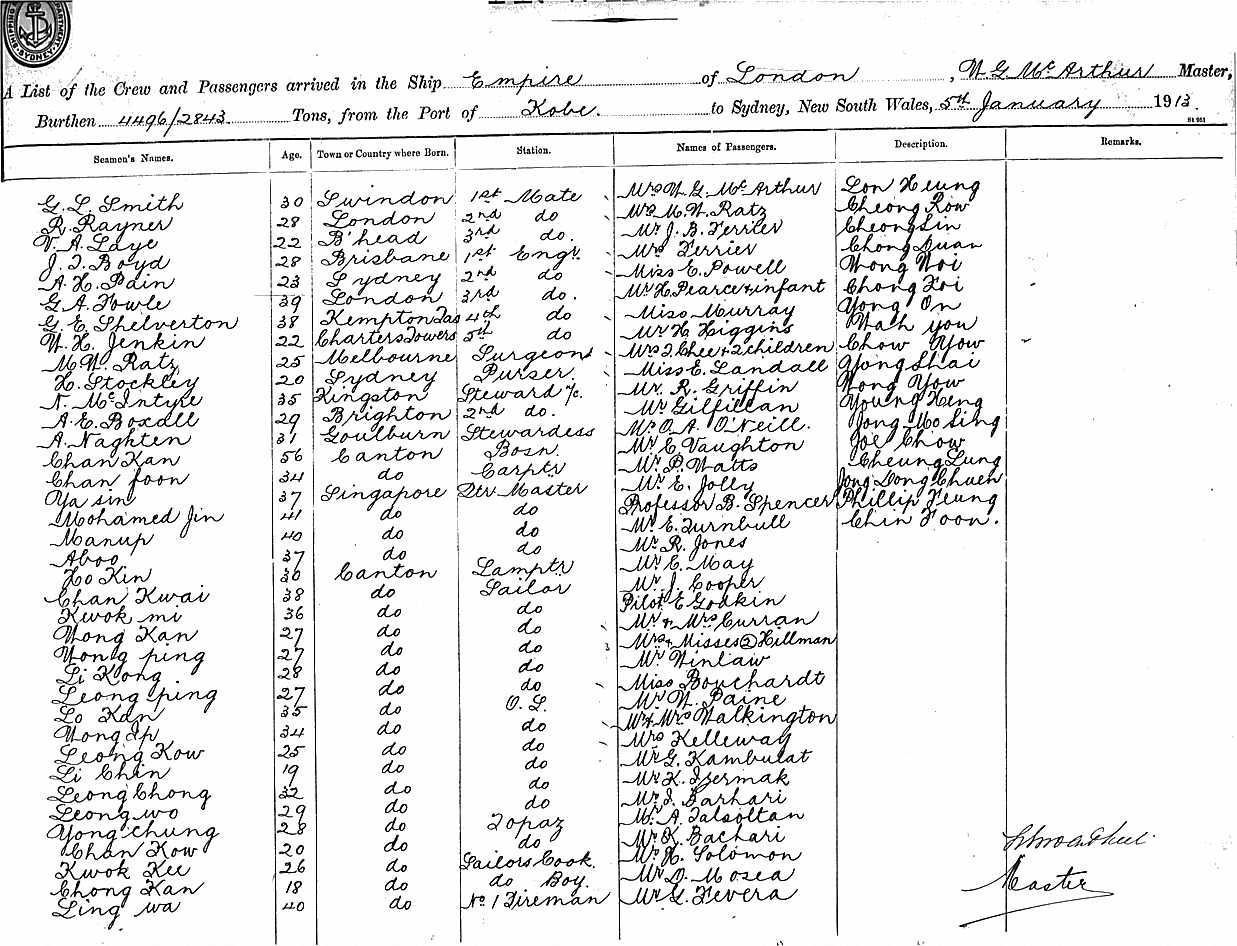 SHIPPING DEPARTMENT SYDNEY
A List of the Crew and Passengers arrived in the Ship Empire of London, W G McArthur Master,
Burthen 4496/2843 Tons, from the Port of Kobe. to Sydney, New South Wales, 5th January 1913.
Seamen's Names. Age. Town or Country where Born. Station. Names of Passengers. Description. Remarks.
G. L. Smith 30 Swindon 1st Mate Mrs W. G. McArthur Lon Heung
R. Rayner 28 London 2nd do Mrs M. W. Ratz Cheong Row
V. A. Laye 22 B'head 3rd do. Mr J. B. Ferrier Cheong Sin
J. T. Boyd 28 Brisbane 1st Engr. Mrs Ferrier Chong Quan
A. H. Pain 23 Sydney 2nd do Miss E. Powell Wong Noi
G. A. Fowle 39 London 3rd do. Mr H. Pearce & infant Chong Hoi
G. E. Shelverton 38 Kempton Tas 4th do Miss Murray Yong On
W. H. Jenkin 22 Charters Towers 5th do Mr H Higgins Wah you
M. W. Ratz 25 Melbourne Surgeon Mrs T. Chee & 2 children Chow Yow
H. Stockley 20 Sydney Purser. Miss E. Landall Yong Shai
N. McIntyre 35 Kingston Steward 1/c. Mr. R. Griffin Wong Yow
A. E. Boxall 29 Brighton 2nd do. Mr Gilfillan Young Heng
A. Naghten 31 Goulburn Stewardess Mr O. A. O'Neill. Jong Mo Sing
Chan Kan 56 Canton Bosn. Mr E. Vaughton Joe Chow
Chan foon 34 do Carptr Mr. P. Watts Cheung Lung
Ya sin 37 Singapore Qtr Master Mr E. Jolly Jong Dong Chueh
Mohamed Jin 41 do do Professor B. Spencer Phillip Yeung
Manup 40 do do Mr E. Turnbull Chin Foon.
Aboo 37 do do Mr R. Jones
Ho Kin 30 Canton Lamptr Mr C. May
Chan Kwai 38 do Sailor Mr. J. Cooper
Kwok mi 36 do do Pilot E Godkin
Wong Kan 27 do do Mr & Mrs Curran
Wong ping 27 do do Mrs & Misses (2) Hillman
Li Kong 28 do do Mr Winlaw
Leong ping 27 do do Miss Bouchardt
Lo Kan 35 do O. S. Mr W. Paine
Wong Ip 34 do do Mr & Mrs Walkington
Leong Kow 25 do do Mrs Kelleway
Li Chin 19 do do Mr G. Kambulat
Leong Chong 32 do do Mr K. Izermak
Leong wo 29 do do Mr I. Barhari
Yong chung 28 do Topaz Mr A. Talsoltan
Chan Kow 20 do do Mr K. Bachari
Kwok Kee 26 do Sailors Cook. Mr H. Solomon
Chong Kan 18 do do Boy. Mr D. Mosea
Ling wa 40 do No 1 Fireman Mr G. Fevera
Master